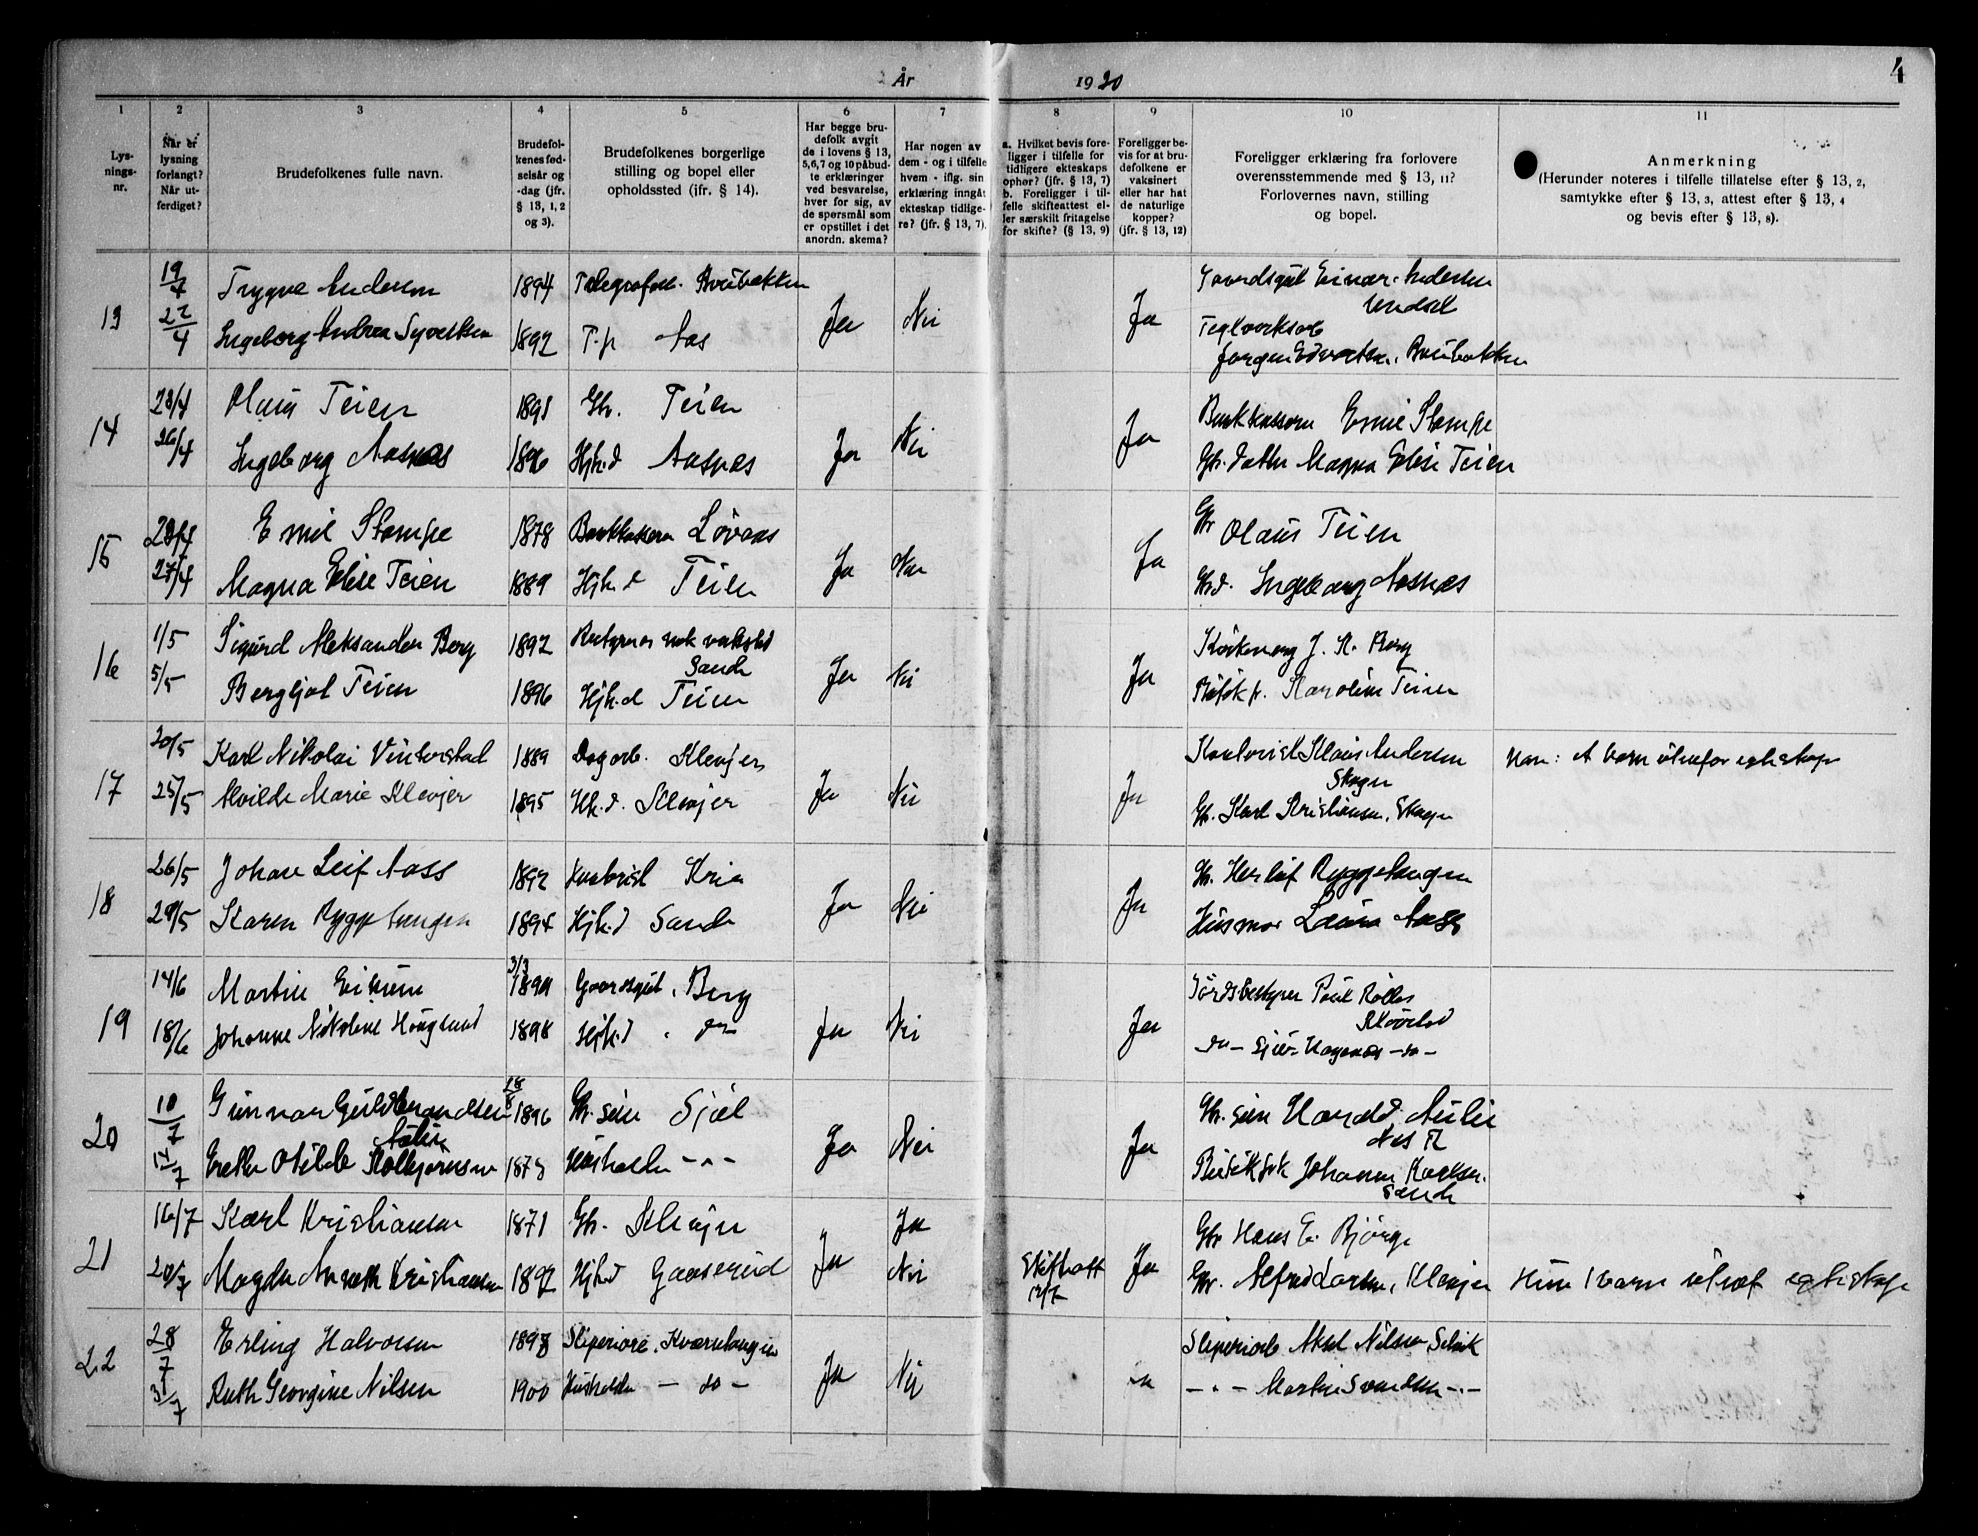 År 1920
4
1 2 3 4 5 6 7 8 9 10 11
Lys-
nings-
nr.
Når er
lysning
forlangt?
Når ut-
ferdiget?
Brudefolkenes fulle navn.
Brudefol-
kenes fød-
selsår og
-dag (jfr.
§ 13, 1, 2
og 3).
Brudefolkenes borgerlige
stilling og bopel eller
opholdssted (ifr. § 14).
Har begge bru-
defolk avgit
de i lovens § 13,
5,6,7 og 10 påbud-
te erklæringer
ved besvarelse,
hver for sig, av
de spørsmål som
er opstillet i det
anordn. skema?
Har nogen av
dem - og i tilfelle
hvem - iflg. sin
erklæring inngåt
ekteskap tidlige-
re? (jfr. § 13, 7).
a. Hvilket bevis fore-
ligger i tilfelle for
tidligere ekteskaps
ophør? (jfr. § 13, 7)
b. Foreligger i til-
felle skifteattest el-
ler særskilt fritagelse
for skifte? (§ 13, 9)
Foreligger be-
vis for at bru-
defolkene er
vaksinert
eller har hat
de naturlige
kopper?
(jfr. § 13, 12)
Foreligger erklæring fra forlovere
overensstemmende med § 13, 11?
Forlovernes navn, stilling
og bopel.
Anmerkning
(Herunder noteres i tilfelle tillatelse efter § 13, 2,
samtykke efter § 13, 3, attest efter § 13, 4
og bevis efter § 13, 8).
13 19/4 Trygve Andersen 1894 Ja Nei Ja Einar Andersen
22/4 Ingeborg Andrea Syvertsen 1892 T.p. Aas
14 23/4 Olaus Teien 1891 Gbr. Teien Ja Nei Ja Bankkasserer Emil Stampe
26/4 Ingeborg Aasnes 1896 Hjh.d Aasnes Gbr. datter Magna Elise Teien
15 23/4 Emil Stampe 1878 Bankkasserer Løvaas Ja Nei Ja Gbr Olaus Teien
27/4 Magna Elise Teien 1889 Hjh.d Teien Gbr.d. Ingeborg Aasnes
16 1/5 Sigurd Aleksander Berg 1892 Sande Ja Nei Ja J. A. Berg
5/5 Bergljot Teien 1896 Hjh.d Teien Karoline Teien
17 20/5 Karl Nikolai Vinterstad 1889 Dagarb. Klevjer Ja Nei Ja Kontorist Klaus Andersen
Skogn
25/5 Alvilde Marie Klevjer 1895 Hjh.d. Klevjer Gbr. Karl Kristiansen, Skogn
Han: barn utenfor egteskap
18 26/5 Johan Leif Aass 1892 Kontorist Kria Ja Nei Ja Gbr. Herlof Ryggetangen
29/5 Karen Ryggetangen 1894 Hjh.d Sande Husmor Laura Aass
19 14/6 Martin 3/3 1891 Gaardsgut, Berg Ja Nei Ja Paul
18/6 Johanne Nikoline Haugland 1898 Hjh.d do -do- -do-
20 10/7 Gunnar Guldbrandsen Aulie 18/8 1896 Gbr. søn Sjøl Ja Nei Ja Gbr. søn Harald Aulie
14/7 Hilde 1873 Husholder -"- Johanne
Sande
21 16/7 Karl Kristiansen 1871 Gbr. Klevjer Ja Ja Ja Gbr Hans E. Bjørge
20/7 Magda Kristiansen 1892 Hjh.d Gaaserud Nei Skifteatt Gbr. Alfred Larsen, Klevjer Hun 1 barn utenf. egteskap
22 28/7 Erling Halvorsen 1898 Sliperiarb. Kværntangen Ja Nei Ja Sliperiarb Aksel Nilsen Selvik
31/7 Ruth Georgine Nilsen 1900 Husholder - do - -"- Martin Svendsen -"-